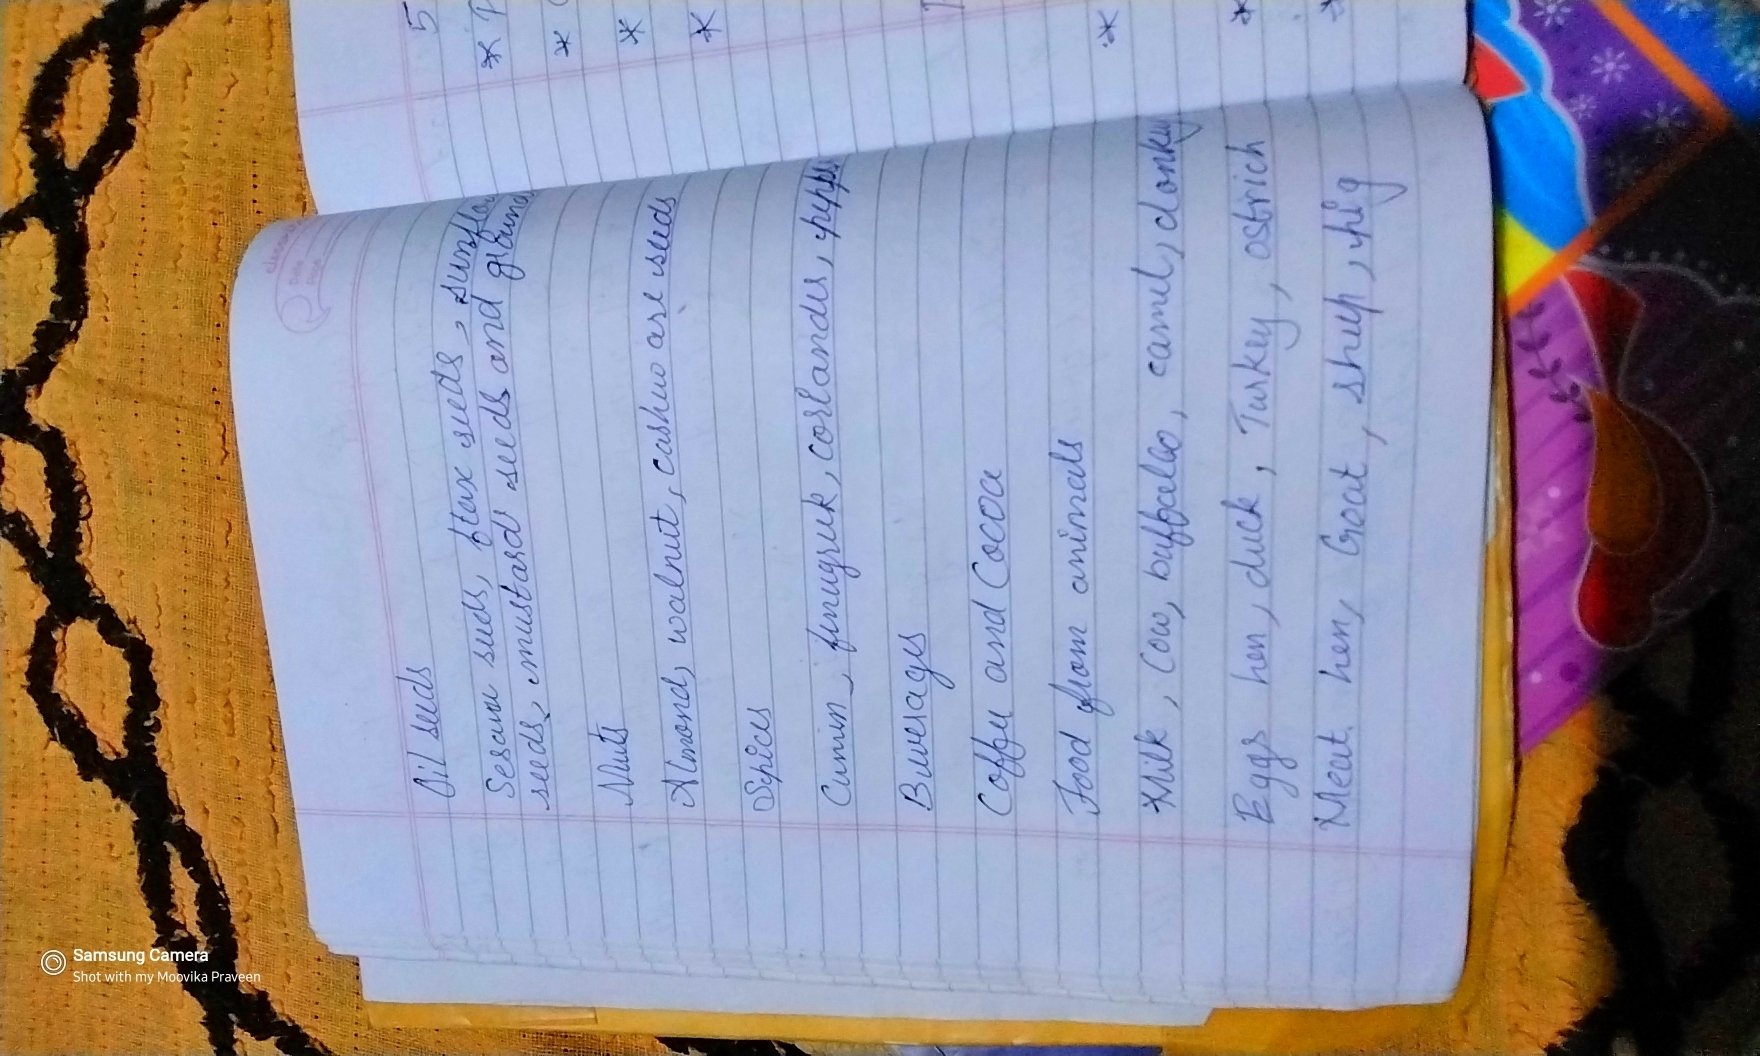 Oil seeds
Sesame seeds, flax seeds, sunflow
seeds, mustard seeds and ground
Nuts
Almond, walnut, cashew are seeds
Spices
Cumin, finugreek, coriander, pepper
Beverages
Coffee and Cocoa
Food from animals
Milk, Cow, buffaloo, camel, donkey
Eggs hen, duck, Turkey, ostrich
Meat hen, Goat, sheep, pig
5
Date
Page
Samsung Camera
Shot with my Moovika Praveen